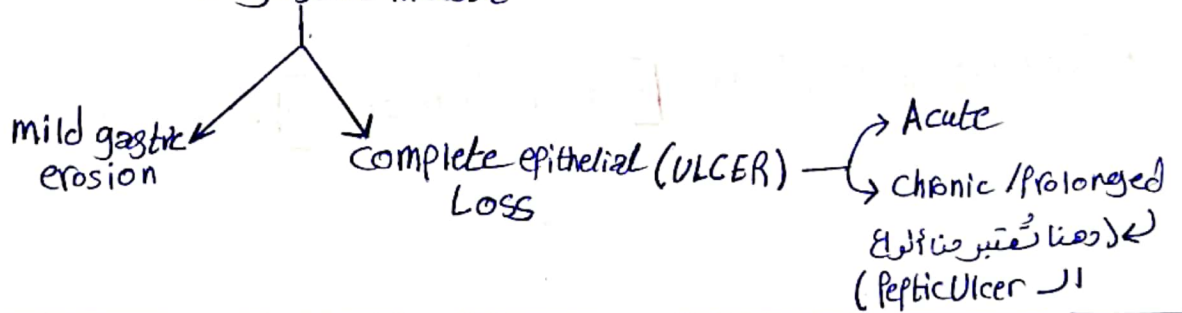 mild gastric
erosion
complete epithelial (ULCER)
Loss
Acute
chronic / Prolonged
(وهنا تُعتبر من أنواع
الـ Peptic Ulcer)